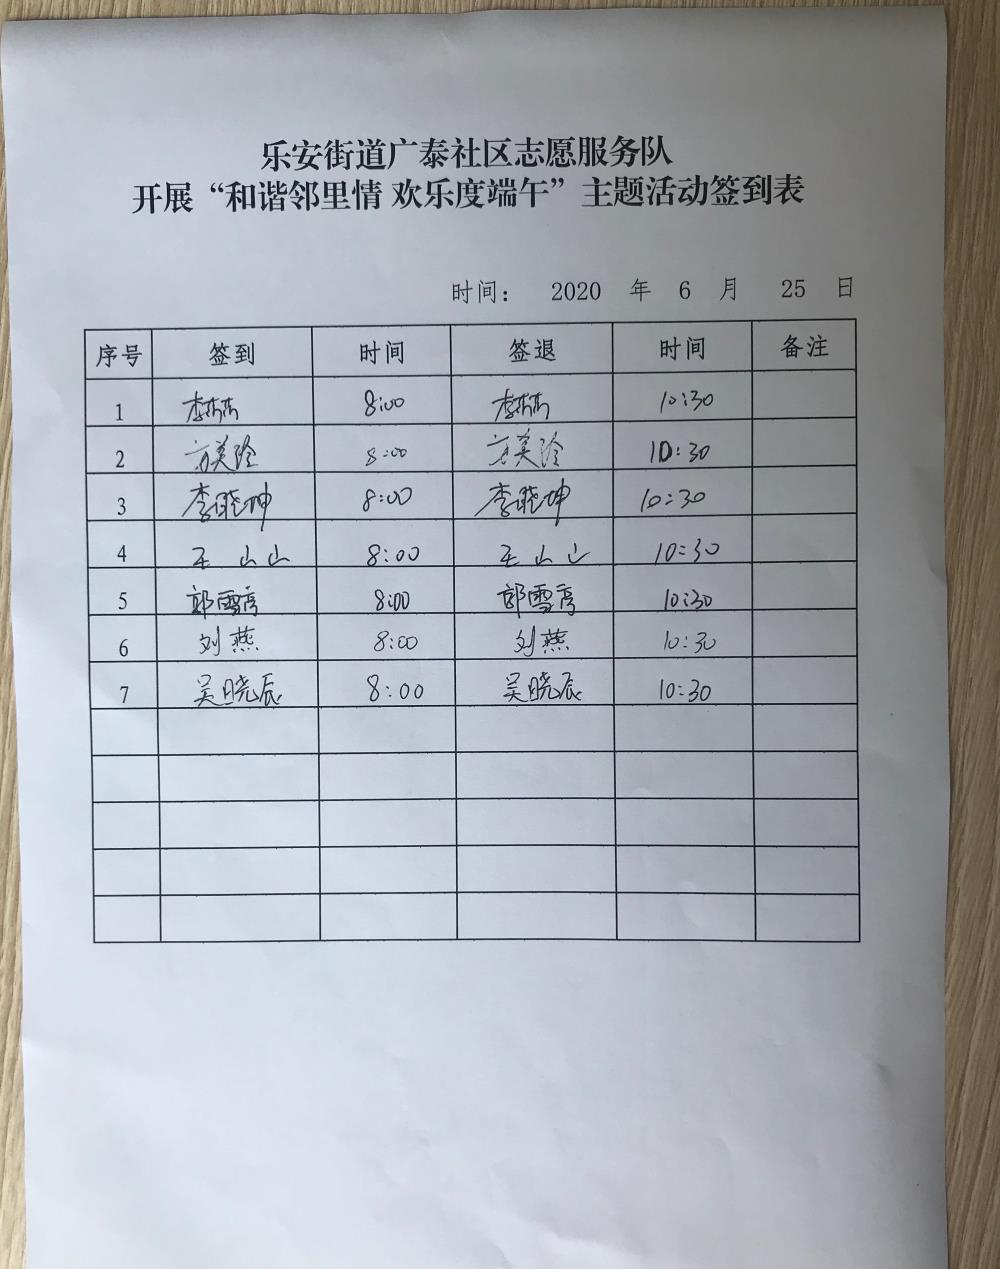 乐安街道广泰社区志愿服务队
开展“和谐邻里情 欢乐度端午”主题活动签到表
时间： 2020 年 6 月 25 日
序号 签到 时间 签退 时间 备注
1 李杰杰 8:00 李杰杰 10:30
2 方美玲 8:00 方美玲 10:30
3 李晓坤 8:00 李晓坤 10:30
4 王山山 8:00 王山山 10:30
5 郭雪 8:00 郭雪 10:30
6 刘燕 8:00 刘燕 10:30
7 吴晓辰 8:00 吴晓辰 10:30